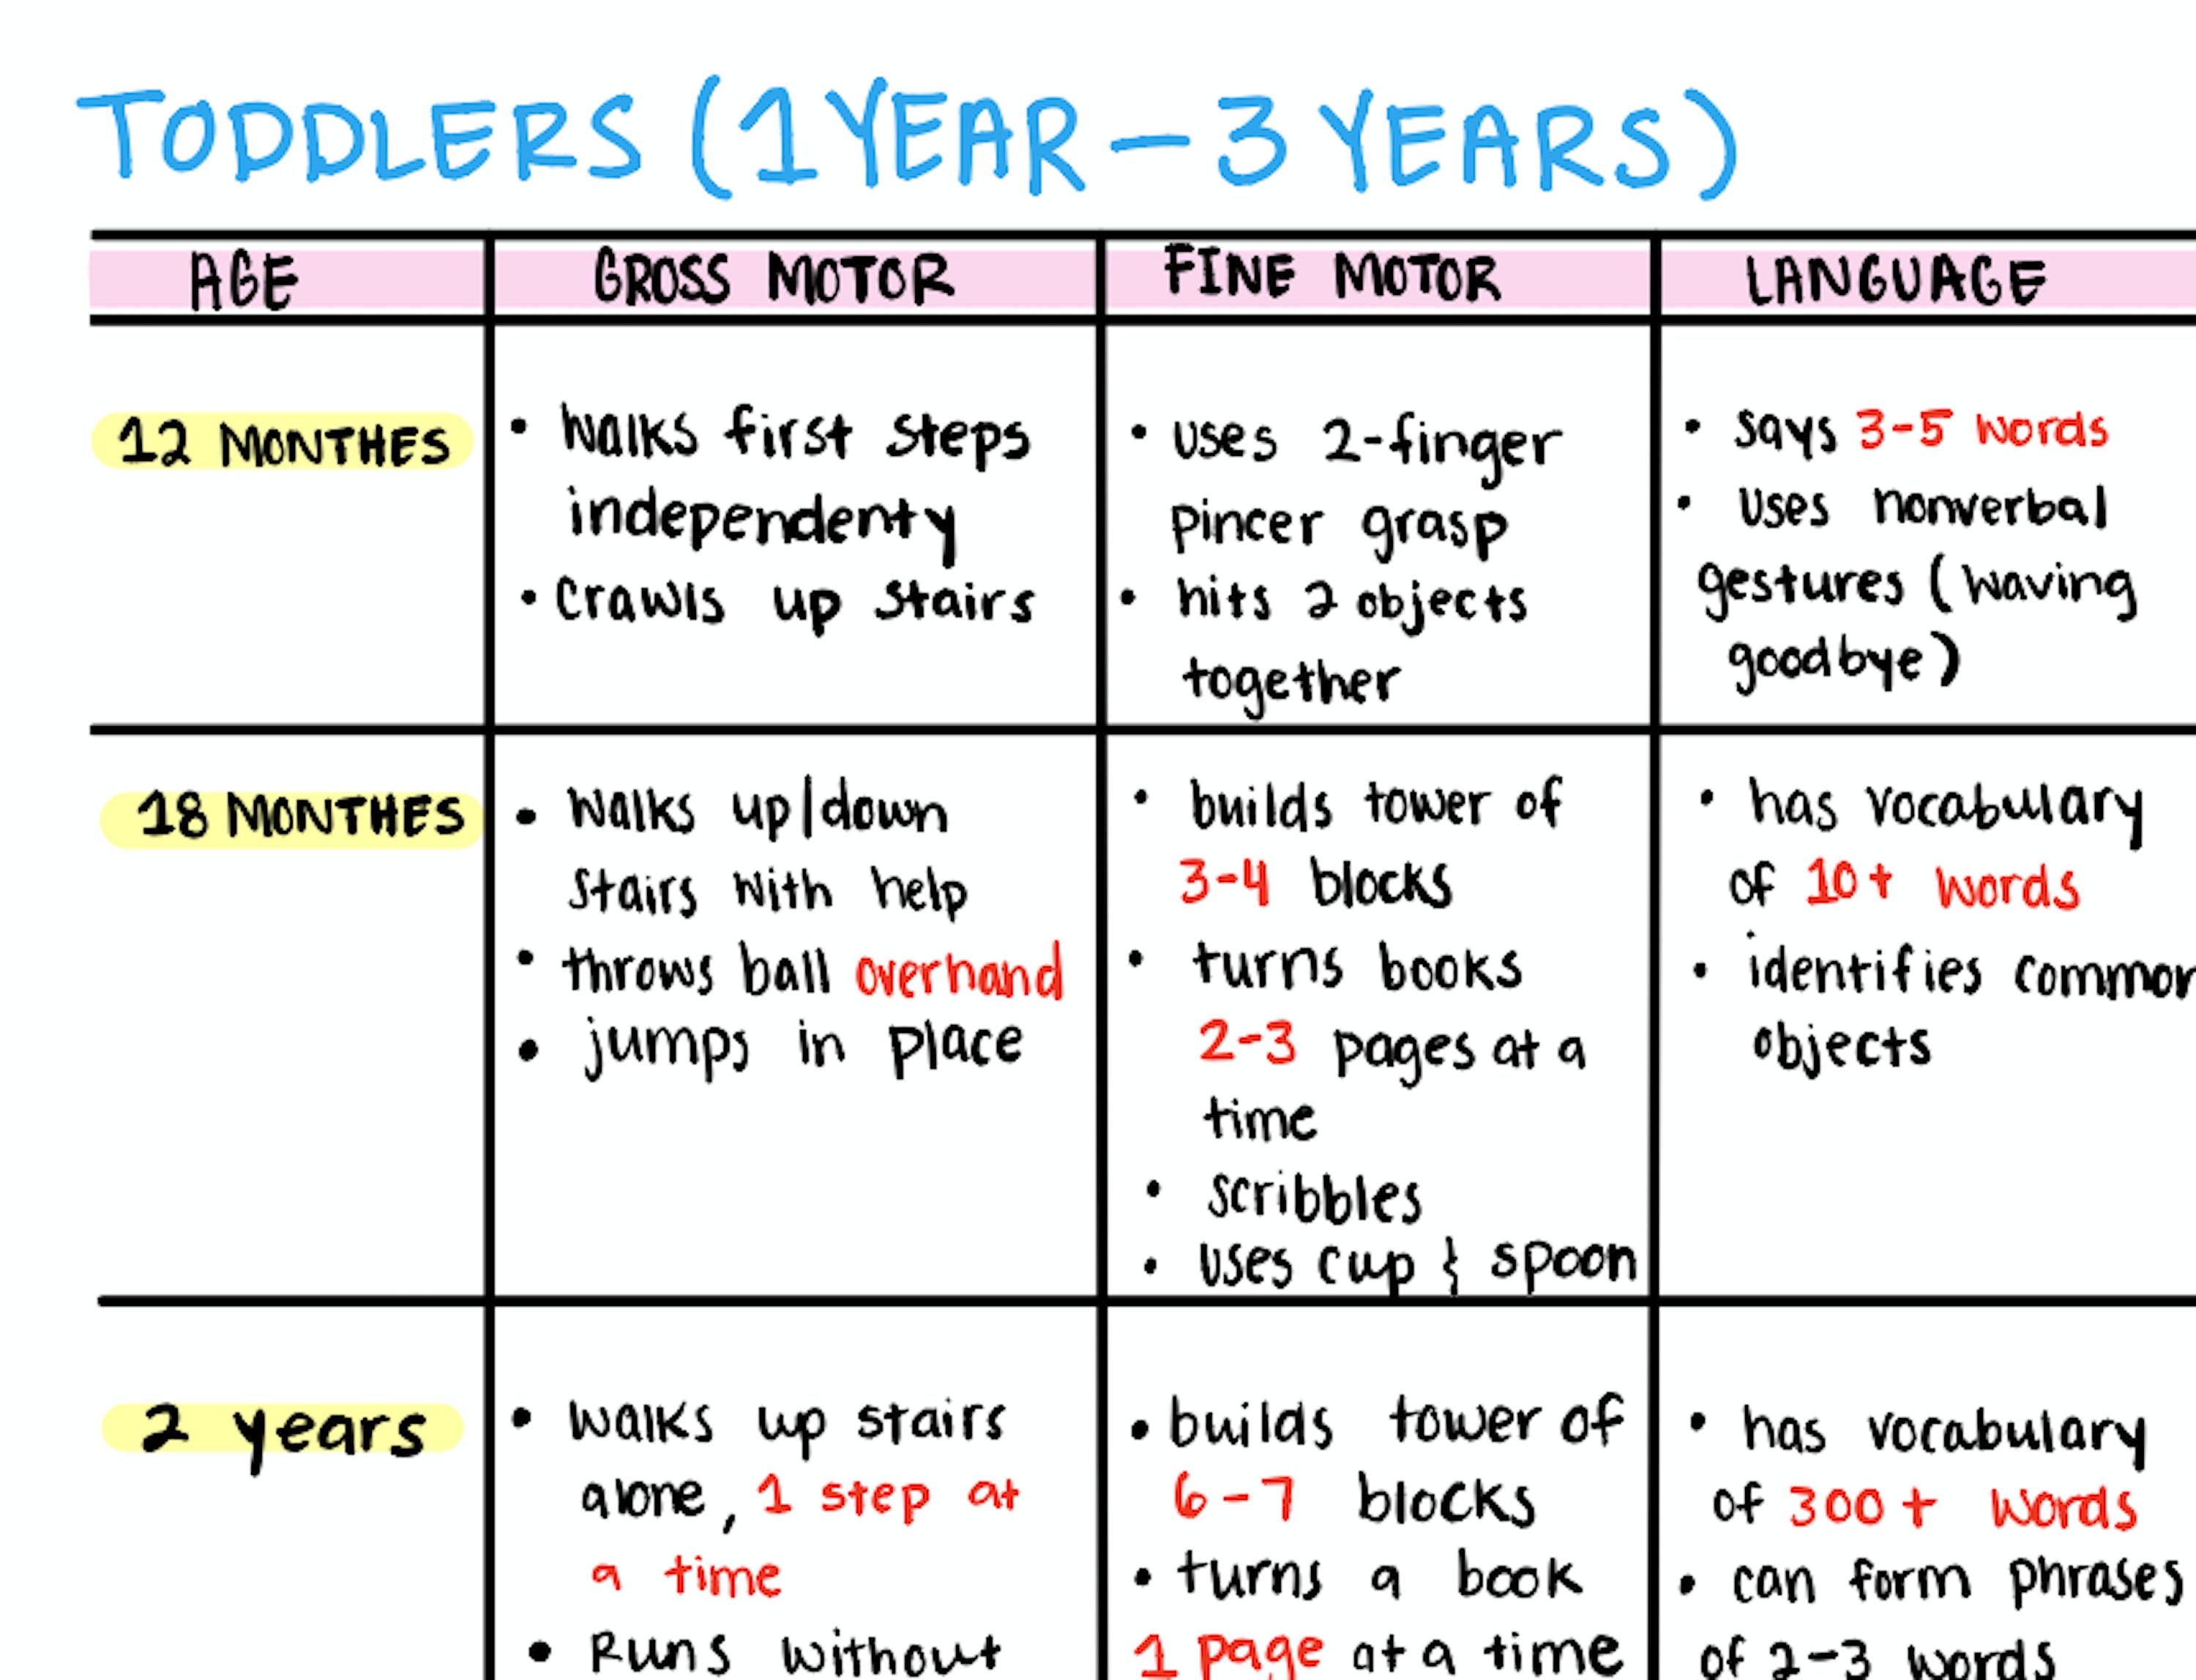 TODDLERS (1 YEAR – 3 YEARS)
AGE
GROSS MOTOR
FINE MOTOR
LANGUAGE
12 MONTHES
• walks first steps
independenty
• crawls up stairs
• uses 2-finger
pincer grasp
• hits 2 objects
together
• says 3-5 words
• uses nonverbal
gestures (waving
goodbye)
18 MONTHES
• walks up/down
stairs with help
• throws ball overhand
• jumps in place
• builds tower of
3-4 blocks
• turns books
2-3 pages at a
time
• scribbles
• uses cup } spoon
• has vocabulary
of 10+ words
• identifies common
objects
2 years
• walks up stairs
alone, 1 step at
a time
• Runs without
• builds tower of
6-7 blocks
• turns a book
1 page at a time
• has vocabulary
of 300+ words
• can form phrases
of 2-3 words